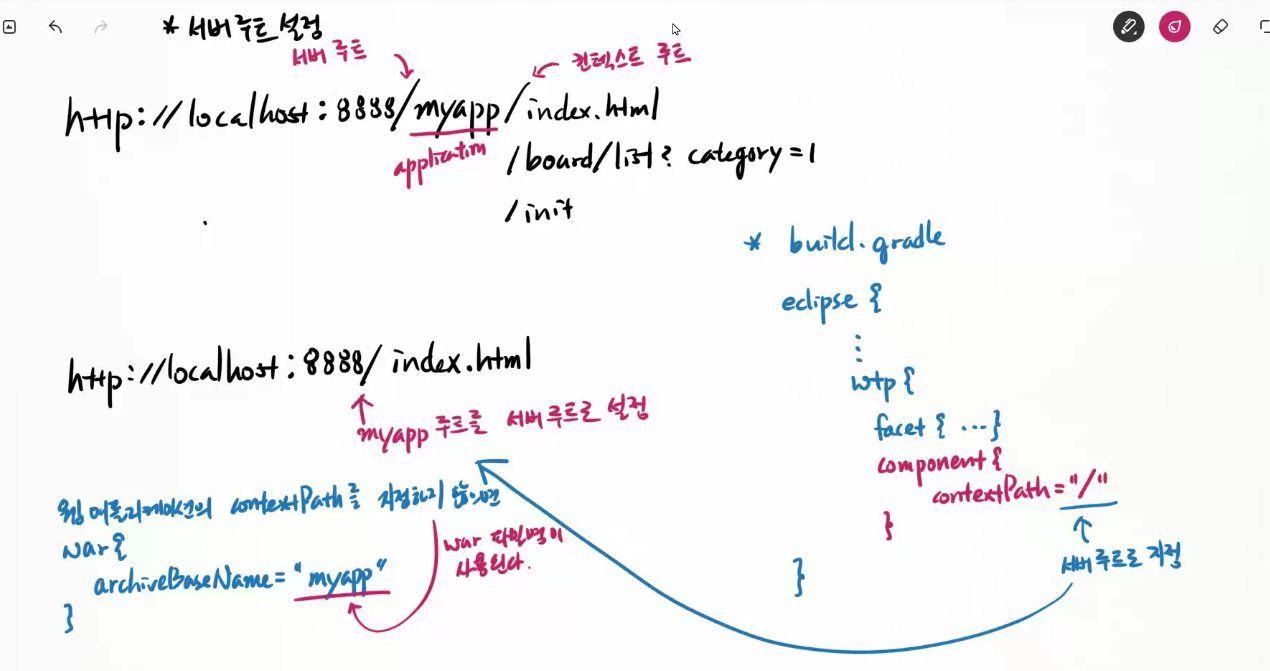 * 서버 루트 설정
서버 루트
컨텍스트 루트
http://localhost:8888/myapp/index.html
application
/board/list? category=1
/init
http://localhost:8888/index.html
myapp 루트를 서버 루트로 설정
웹 어플리케이션의 contextPath를 지정하지 않으면
war{
archiveBaseName="myapp"
}
war 파일명이
사용된다.
* build.gradle
eclipse {
⋮
wtp {
facet { ...}
component {
contextPath="/"
}
}
서버 루트로 지정